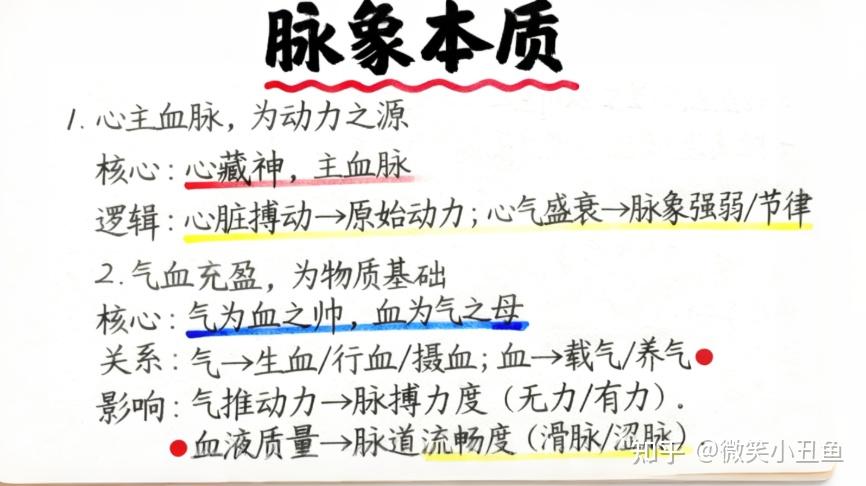 脉象本质
1. 心主血脉，为动力之源
核心：心藏神，主血脉
逻辑：心脏搏动→原始动力；心气盛衰→脉象强弱/节律
2. 气血充盈，为物质基础
核心：气为血之帅，血为气之母
关系：气→生血/行血/摄血；血→载气/养气
影响：气推动力→脉搏力度（无力/有力）.
血液质量→脉道流畅度（滑脉/涩脉）.
知乎 @微笑小丑鱼